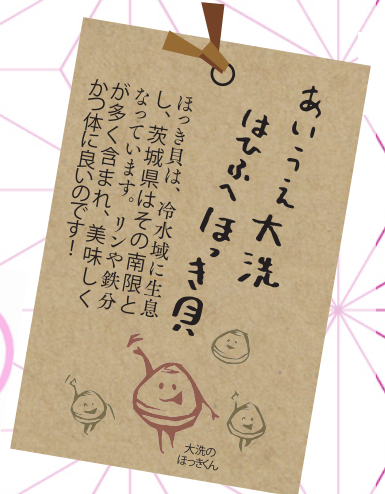 あいうえ大洗
はひふへほっき貝
ほっき貝は、冷水域に生息
し、茨城県はその南限と
なっています。リンや鉄分
が多く含まれ、美味しく
かつ体に良いのです！
大洗の
ほっきくん